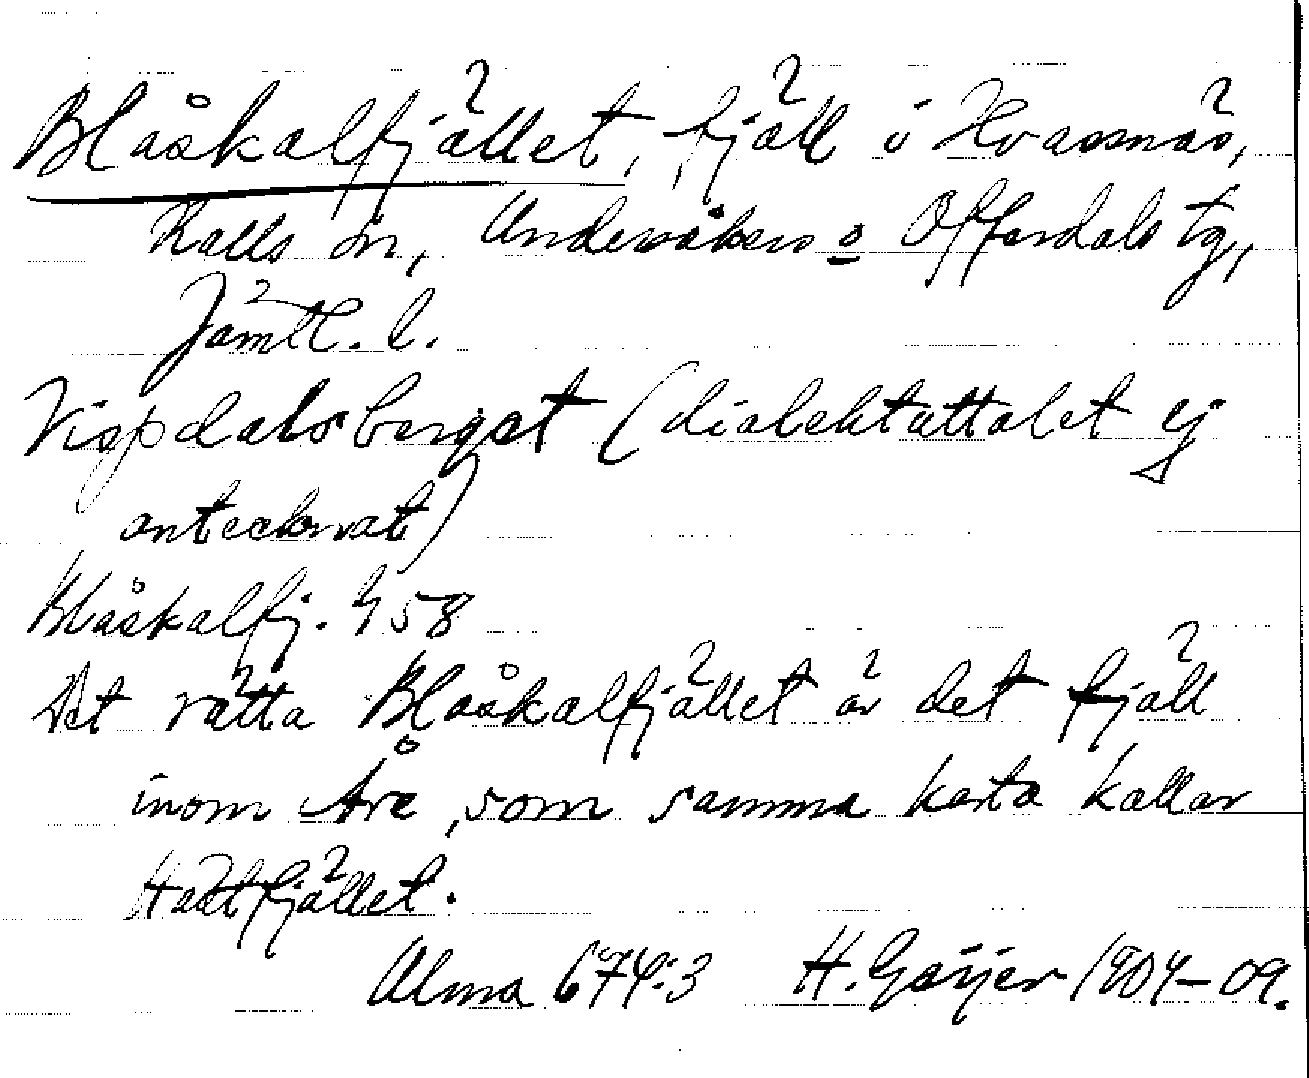 Blåskalfjället, fjäll i Kvassnäs,
Kalls sn, Undersåkers o Offerdals tg,
Jämtl. l.
bergst (dialektuttalet ej
antecknat)
Blåskalfj. 458
Det rätta Blåskalfjället är det fjäll
inom Åre, som samma karta kallar
Hattfjället.
Ulma 674:3 H. Geijer 1904-09.